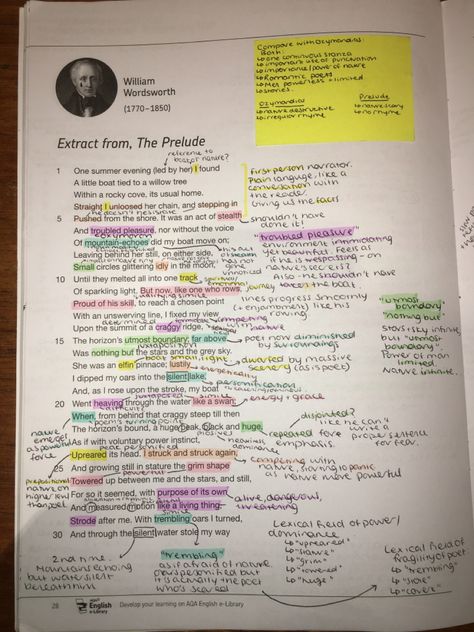 Compare with Ozymandias:
Both:
↳ one continuous stanza
↳ important use of punctuation
↳ importance/power of nature
↳ Romantic poets
↳ Men powerless + limited
↳ stories.
Ozymandias
↳ nature destructive
↳ irregular rhyme
Prelude
↳ nature scary
↳ no rhyme
William
Wordsworth
(1770–1850)
Extract from, The Prelude
reference to
1 One summer evening (led by her) I found
A little boat tied to a willow tree
Within a rocky cove, its usual home.
Straight I unloosed her chain, and stepping in
5 Pushed from the shore. It was an act of stealth
And troubled pleasure, nor without the voice
oxymoron
Of mountain-echoes did my boat move on;
Leaving behind her still, on either side,
Small circles glittering idly in the moon,
10 Until they melted all into one track
Of sparkling light. But now, like one who rows,
Proud of his skill, to reach a chosen point
With an unswerving line, I fixed my view
Upon the summit of a craggy ridge,
15 The horizon's utmost boundary; far above
Was nothing but the stars and the grey sky.
She was an elfin pinnace; lustily
I dipped my oars into the silent lake,
And, as I rose upon the stroke, my boat
20 Went heaving through the water like a swan;
When, from behind that craggy steep till then
The horizon's bound, a huge peak, black and huge,
As if with voluntary power instinct,
Upreared its head. I struck and struck again,
25 And growing still in stature the grim shape
Towered up between me and the stars, and still,
For so it seemed, with purpose of its own
And measured motion like a living thing,
Strode after me. With trembling oars I turned,
30 And through the silent water stole my way
first person narrator.
Plain language, like a
conversation with
the reader.
Giving us the facts
shouldn't have
done it!
"troubled pleasure"
environment intimidating
yet beautiful. Feels as
if he is trespassing - on
nature's secret.
Also he shouldn't have
taken the boat.
lines progress smoothly
(+ enjambment) like his
rowing.
"utmost
boundary"
"nothing but"
stars + sky infinite
but "utmost
boundary".
Power of man
limited.
Nature infinite.
poet now diminished
by surroundings
dwarfed by massive
scenery (as is poet)
energetically
personification
simile
energy + grace
disjointed?
like he can't
write a
proper sentence
for fear.
repeated for
emphasis
competing with
nature, starting to panic
as nature more powerful
nature
as powerful
force
alive, dangerous,
threatening
Lexical field of power/
dominance
↳ "upreared"
↳ "grim"
↳ "towered"
↳ "huge"
Lexical field of
fragility of poet
↳ "trembling"
↳ "stole"
2nd time.
Mountains echoing
but water silent
beneath him
"trembling"
as if afraid of nature.
oars personified but
it is actually the poet
who's scared
28
AQA
English
e-Library
Develop your learning on AQA English e-Library